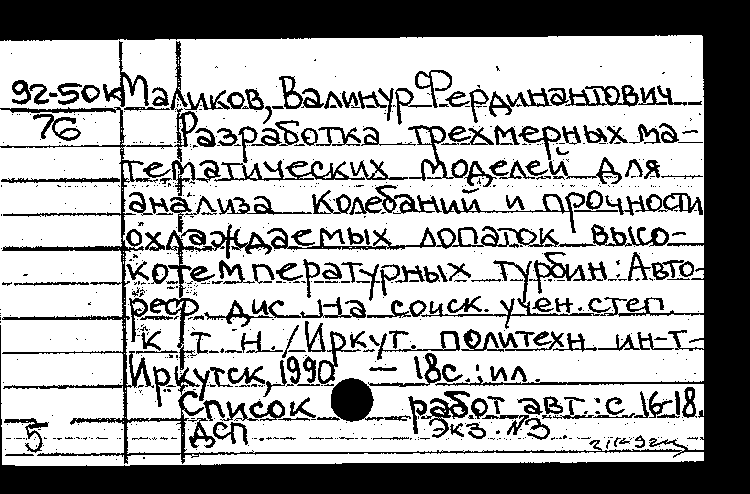 92-50к Маликов, Валинур Фердинантович
76 Разработка трехмерных ма-
тематических моделей для
анализа колебаний и прочности
охлаждаемых лопаток высо-
котемпературных турбин: Авто-
реф. дис. на соиск. учен. степ.
к. т. н. / Иркут. политехн. ин-т-
Иркутск, 1990. — 18с.: ил.
Список работ авт.: с 16-18.
5 ДСП Экз. №3.